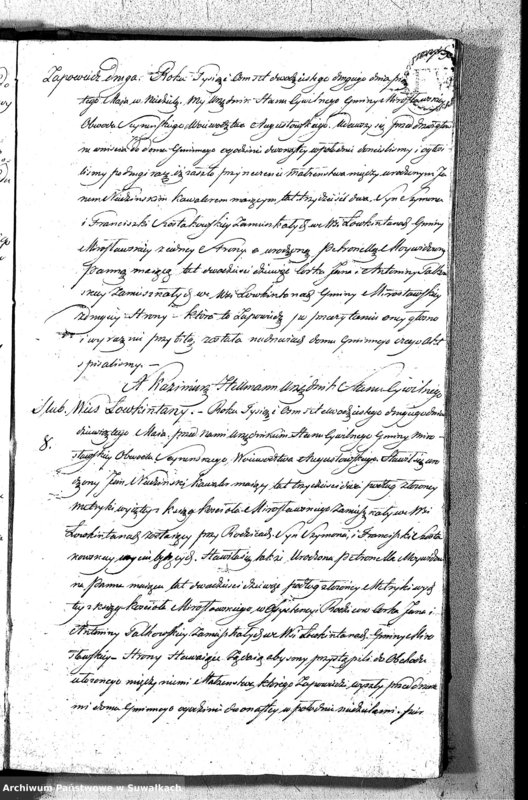 Zapowiedź Druga. Roku Tysiąc Omset dwudziestego drugiego dnia pią
tego Maja w Niedzielę. My Urzędnik Stanu Cywilnego Gminy Mirosławskiey
Obwodu Seynyńskiego, Woiewództwa Augustowskiego. Udawszy się przed drzwi główne
na wniście do domu Gminnego o godzinie dwunastey w południe donieśliśmy i ogłosi
liśmy po drugi raz iż zaszło przyrzeczenie Małżeństwa między urodzonym Ja
nem Niedzińskim kawalerem maiącym, lat trzydzieści dwa, Syn Szymona
i Franciszki Zamieszkałych we Wsi Łowkintanach Gminy
Mirosławskiey z iedney Strony a urodzoną Petronellą
Panną maiącą lat dwadzieścia dziewięć Córka Jana i Antoniny
Zamieszkałych we Wsi Łowkintanach Gminy Mirosławskiey
z drugiey Strony - która to Zapowiedź po przeczytaniu oney głośno
i wyraźnie przybita została na drzwiach domu Gminnego czego Akt
spisaliśmy. —
A Kazimierz Hillmann Urzędnik Stanu Cywilnego
Ślub. Wieś Łowkintany. — Roku Tysiąc Omset dwudziestego drugiego dnia
8.
dziewiątego Maia, przed Nami Urzędnikiem Stanu Cywilnego Gminy Miro
sławskiey Obwodu Seynyńskiego, Woiewództwa Augustowskiego Stawił się uro
dzony Jan Niedziński kawaler maiący lat trzydzieści dwa podług złożoney
metryki wyiętey z ksiąg kościoła Mirosławskiego Zamieszkały we Wsi
Łowkintanach zostaiący przy Rodzicach, Syn Szymona, i Franciszki
Stawiła się także Urodzona Petronella
na Panna maiąca lat dwadzieścia dziewięć podług złożoney Metryki wyię
tey z ksiąg kościoła Mirosławskiego, w Assystencyi Rodziców Córka Jana i
Antoniny Zamieszkałych we Wsi Łowkintanach Gminy Miro
sławskiey - Strony Stawaiące żądaią abyśmy przystąpili do Obchodu
ułożonego między niemi Małżeństwa, którego Zapowiedzi, wyszły przed drzwia
mi domu Gminnego o godzinie dwunastey w południe
Archiwum Państwowe w Suwałkach